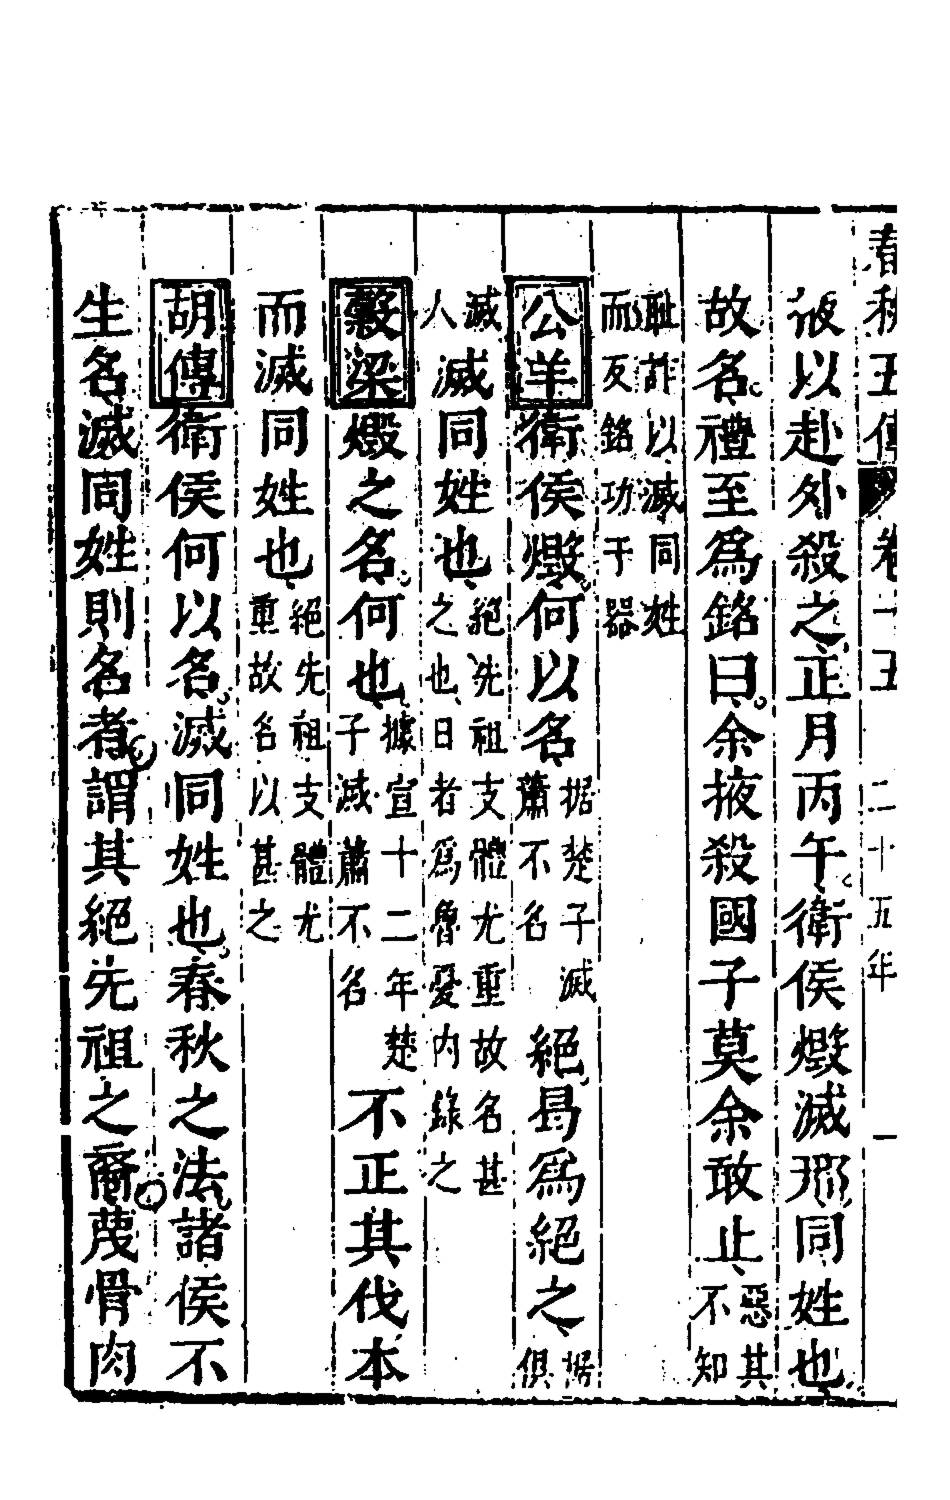 春秋五傳 卷十五 二十五年 一
掖以赴外殺之正月丙午衛侯燬滅邢同姓也
故名禮至為銘曰余掖殺國子莫余敢止惡其不知
恥詐以滅同姓而反銘功于器
公羊衛侯燬何以名据楚子滅蕭不名絕曷為絕之据俱
滅人滅同姓也絕先祖支體尤重故名甚之也日者為魯憂內錄之
穀梁燬之名何也據宣十二年楚子滅蕭不名不正其伐本
而滅同姓也絕先祖支體尤重故名以甚之
胡傳衛侯何以名滅同姓也春秋之法諸侯不
生名滅同姓則名者謂其絕先祖之裔蔑骨肉